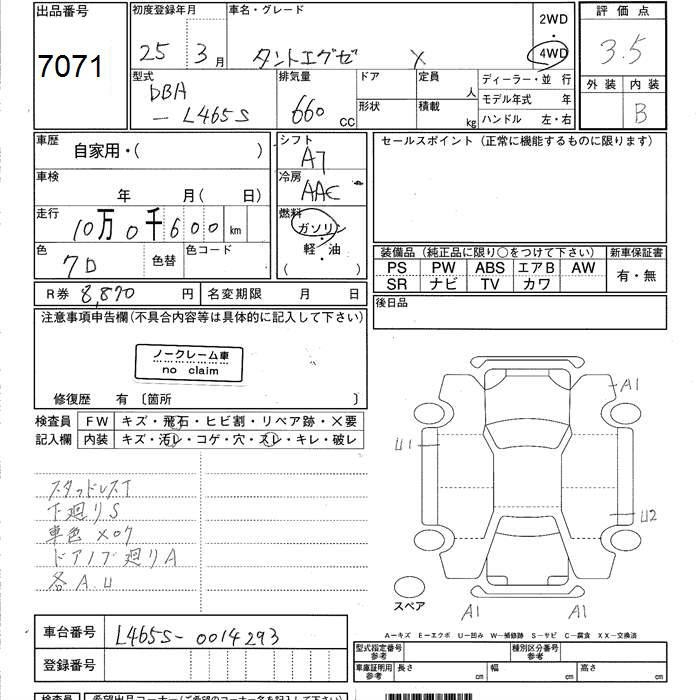 出品番号 初度登録年月 車名・グレード 2WD ・ 4WD 評価点
7071 25 3月 タントエグゼ X 3.5
型式 排気量 ドア 定員 人 ディーラー・並 行 外装 内装
DBA - L465S 660 CC 形状 積載 kg モデル年式 年 B
ハンドル 左・右
車歴 自家用・( ) シフト A7 セールスポイント (正常に機能するものに限ります)
車検 年 月( 日) 冷房 AAC
走行 10万0千600 km 燃料 ガソリン ・ 軽・油 ( )
色 7D 色替 色コード 装備品 (純正品に限り○をつけて下さい) 新車保証書
PS PW ABS エアB AW 有・無
SR ナビ TV カワ
R券 8,870 円 名変期限 月 日 後日品
注意事項申告欄(不具合内容等は具体的に記入して下さい)
ノークレーム車
no claim
修復歴 有 〔箇所 〕
検査員 FW キズ・飛石・ヒビ割・リペア跡・X要
記入欄 内装 キズ・汚レ・コゲ・穴・スレ・キレ・破レ
A1
U1
U2
A1 A1
スタッドレスT
下廻りS
車色 ×07
ドアノブ廻りA
各A.U
スペア
A-キズ E-エクボ U-凹み W-補修跡 S-サビ C-腐食 XX-交換済
車台番号 L465S-0014293
登録番号
型式指定番号 参考 種別区分番号 参考
車庫証明用 参考 長さ cm 幅 cm 高さ cm
検査員 希望出品コーナー(ご希望のコーナー名を記入下さい)